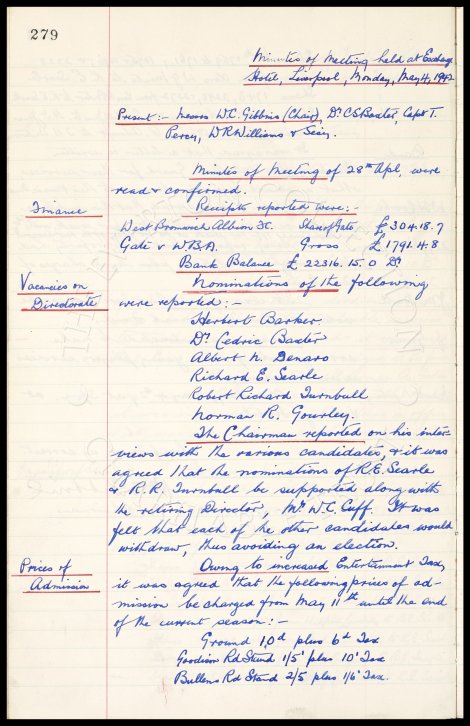 279
Minutes of Meeting held at Exchange
Hotel, Liverpool, Monday, May 4, 1942
Present:- Messrs W.C. Gibbins (Chair), Dr C.S. Baxter, Capt T.
Percy, W R Williams & Secy.
Minutes of Meeting of 28th Apl. were
read & confirmed.
Finance
Receipts reported were:-
West Bromwich Albion Share of Gate £304.18.7
Gate v W.B.A. Gross £1791.4.8
Bank Balance £22316.15.0 Dr
Vacancies on
Directorate
Nominations of the following
were reported:-
Herbert Barker.
Dr Cedric Baxter
Albert N. Denaro
Richard E. Searle
Robert Richard Turnbull
Norman R. Gourley.
The Chairman reported on his inter-
views with the various candidates, & it was
agreed that the nominations of R.E. Searle
& R.R. Turnbull be supported along with
the retiring Director, Mr W.C. Cuff. It was
felt that each of the other candidates would
withdraw, thus avoiding an election.
Prices of
Admission
Owing to increased Entertainment Tax,
it was agreed that the following prices of ad-
mission be charged from May 11th until the end
of the current season:-
Ground 10d plus 6d Tax
Goodison Rd Stand 1/5 plus 10 Tax
Bullens Rd Stand 2/5 plus 1/6 Tax.